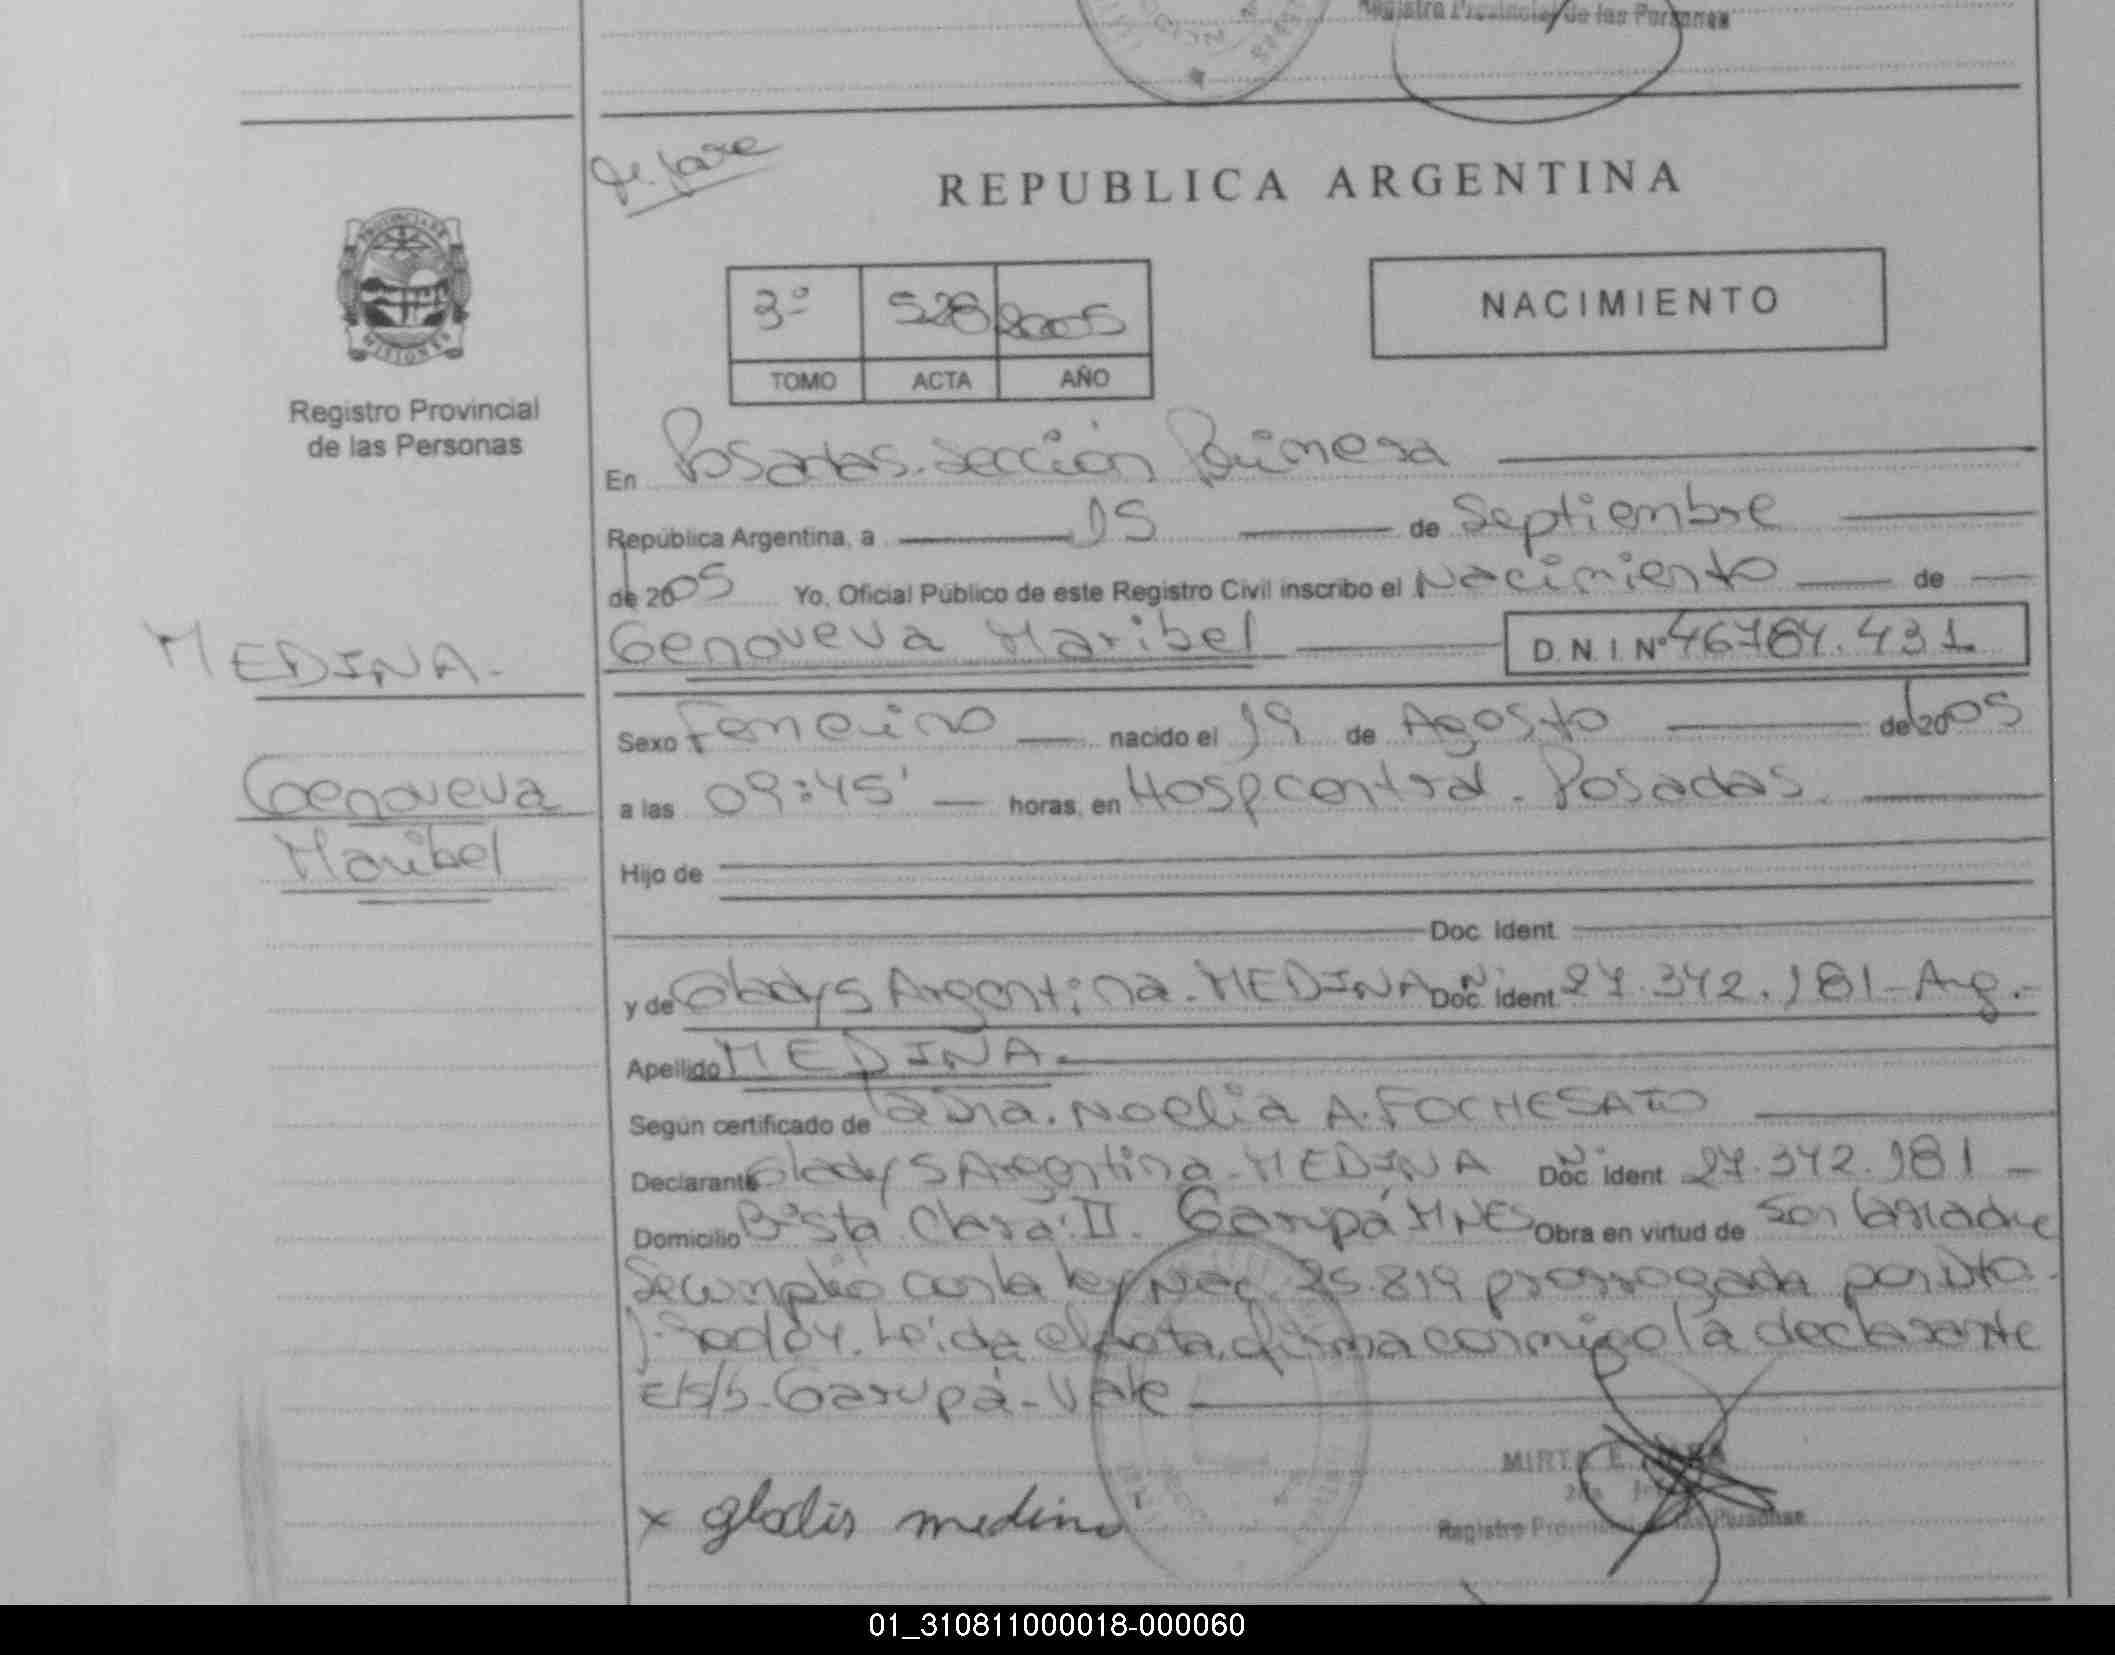 Registro Provincial de las Personas
REPUBLICA ARGENTINA
PROVINCIA DE
MISIONES
Registro Provincial
de las Personas
3º 528 2005
TOMO ACTA AÑO
NACIMIENTO
En Posadas. Sección Primera
República Argentina, a 15 de Septiembre
de 2005 Yo, Oficial Público de este Registro Civil inscribo el Nacimiento de
MEDINA.
Genoveva Maribel D.N.I. Nº 46784.431
Genoveva
Maribel
Sexo Femenino nacido el 19 de Agosto de 2005
a las 09:45' horas, en Hosp central. Posadas.
Hijo de
Doc. Ident
y de Gladys Argentina. MEDINA Doc. Ident. Nº 27.342.181- Arg.-
Apellido MEDINA.
Según certificado de la Dra. Noelia A. FOCHESATO
Declarante Gladys Argentina. MEDINA Doc. Ident Nº 27.342.181
Domicilio Bº Sta. Clara. II. Garupá MNES Obra en virtud de Ser la Madre
Se cumplió con la ley Nac. 25.819 prorrogada por Dto.
Leida el acta, firma conmigo la declarante
Garupá - Vale
x gladis medina
MIRTA E.
Registro Provincial de las Personas
01_310811000018-000060